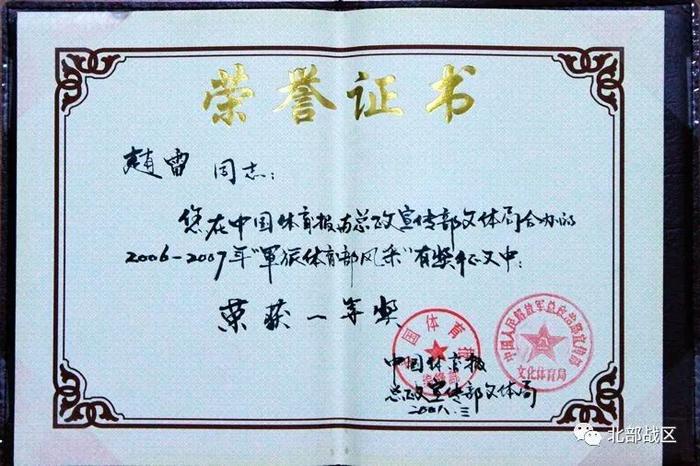 荣誉证书
趙雷 同志：
您在中国体育报与总政宣传部文体局合办的
2006-2007年"軍旅体育部风采"有奖征文中：
荣获一等奖
国体育报
编辑部
中国人民解放军总政治部宣传部
文化体育局
中国体育报
总政宣传部文体局
北部战区